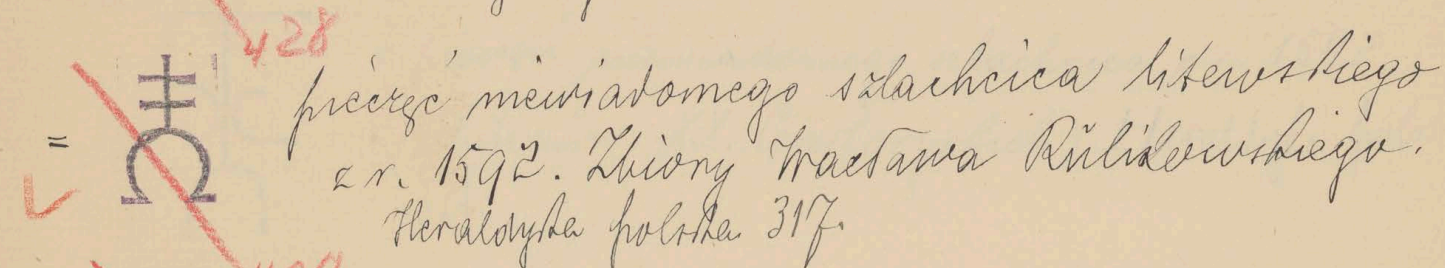 428
= pieczęć niewiadomego szlachcica litewskiego
z r. 1592. Zbiory Wacława Rulikowskiego.
Heraldyka polska 317.